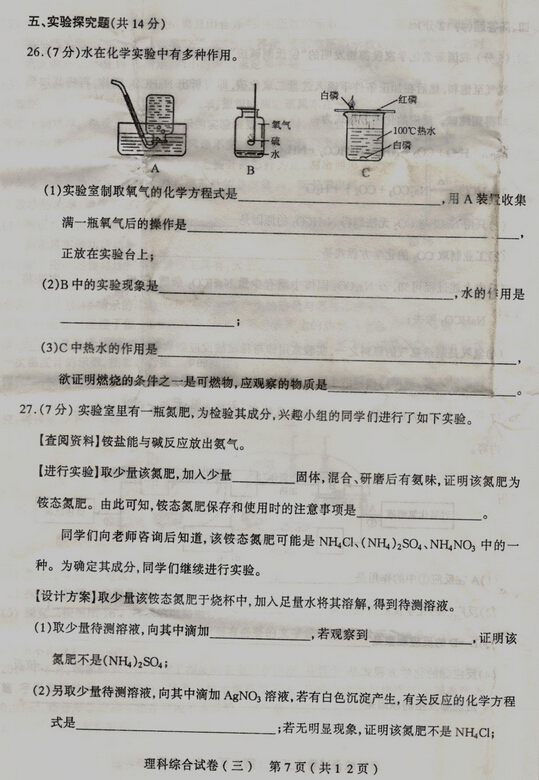 五、实验探究题(共14分)
26.(7分)水在化学实验中有多种作用。
氧气
硫
水
白磷
红磷
100℃热水
白磷
A
B
C
(1)实验室制取氧气的化学方程式是____________,用A装置收集
满一瓶氧气后的操作是____________,
正放在实验台上;
(2)B中的实验现象是____________,水的作用是
____________;
(3)C中热水的作用是____________,
欲证明燃烧的条件之一是可燃物,应观察的物质是____________。
27.(7分)实验室里有一瓶氮肥,为检验其成分,兴趣小组的同学们进行了如下实验。
【查阅资料】铵盐能与碱反应放出氨气。
【进行实验】取少量该氮肥,加入少量________固体,混合、研磨后有氨味,证明该氮肥为
铵态氮肥。由此可知,铵态氮肥保存和使用时的注意事项是____________。
同学们向老师咨询后知道,该铵态氮肥可能是NH₄Cl、(NH₄)₂SO₄、NH₄NO₃中的一
种。为确定其成分,同学们继续进行实验。
【设计方案】取少量该铵态氮肥于烧杯中,加入足量水将其溶解,得到待测溶液。
(1)取少量待测溶液,向其中滴加____________,若观察到____________,证明该
氮肥不是(NH₄)₂SO₄;
(2)另取少量待测溶液,向其中滴加AgNO₃溶液,若有白色沉淀产生,有关反应的化学方程
式是____________;若无明显现象,证明该氮肥不是NH₄Cl;
理科综合试卷(三) 第7页(共12页)